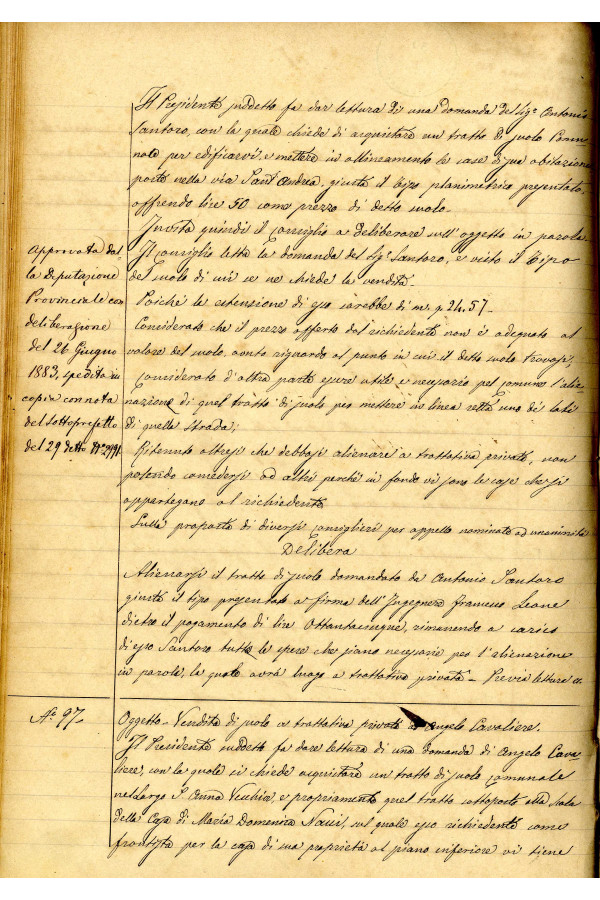 Il Presidente suddetto fa dar lettura di una domanda del Sig.r Antonio
Santoro, con la quale chiede di acquistare un tratto di suolo Comu-
nale per edificarvi, e mettere in allineamento le case di sua abitazione
poste nella via Sant'Andrea, giusta il tipo planimetrico presentato,
offrendo lire 50 come prezzo di detto suolo.
Invita quindi il consiglio a deliberare sull'oggetto in parola.
Il consiglio letta la domanda del Sig.r Santoro, e visto il tipo
del suolo di cui se ne chiede la vendita.
Poiché la estensione di esso sarebbe di m. q. 24.57.
Considerato che il prezzo offerto dal richiedente non è adeguato al
valore del suolo, avuto riguardo al punto in cui il detto suolo trovasi;
considerato d'altra parte essere utile e necessario pel comune l'alie-
nazione di quel tratto di suolo per mettere in linea retta uno dei lati
di quella strada;
Ritenuto altresì che debbasi alienare a trattativa privata, non
potendo concedersi ad altri perché in fondo vi sono le case che si
appartegano al richiedente
Sulla proposta di diversi consiglieri per appello nominale ad unanimità
Delibera
Alienarsi il tratto di suolo domandato da Antonio Santoro
giusta il tipo presentato a firma dell'Ingegnere Francesco Leone
dietro il pagamento di lire Ottantacinque, rimanendo a carico
di esso Santoro tutte le spese che siano necessarie per l'alienazione
in parola, la quale avrà luogo a trattativa privata - Previa lettura &.
Approvata dal-
la Deputazione
Provinciale con
deliberazione
del 26 Giugno
1883, spedita in
copia con nota
del Sottoprefetto
del 29 detto N.o
N.o 97.
Oggetto - Vendita di suolo a trattativa privata a Angelo Cavaliere.
Il Presidente suddetto fa dare lettura di una domanda di Angelo Cava-
liere, con la quale si chiede acquistare un tratto di suolo comunale
nel largo S. Anna Vecchia, e propriamente quel tratto sottoposto alla scala
della Casa di Maria Domenica, sul quale esso richiedente come
frontista per la casa di sua proprietà al piano inferiore vi tiene